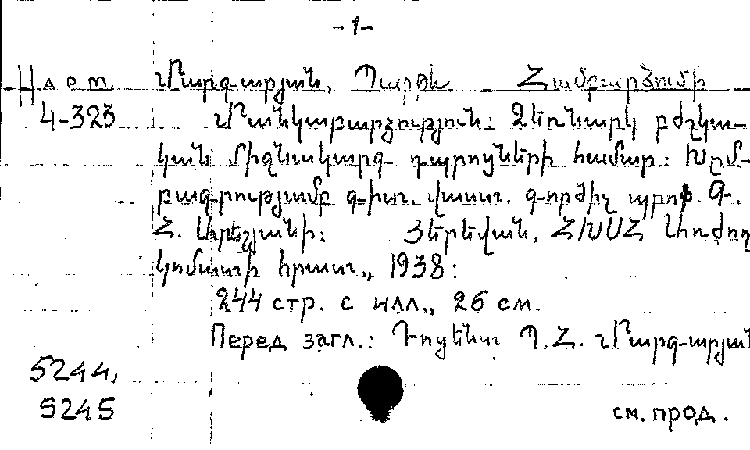 -1-
Н дот Մարգարյան, Պարթև Համբարձումի
4-323 Մանկաբարձություն: Ձեռնարկ բժշկա-
կան միջնակարգ դպրոցների համար: Խըմ-
բագրությամբ գիտ. վաստ. գործիչ պրոֆ. Գ.
Հ. Արեշյանի: Յերեվան, ՀԽՍՀ Առժող
կոմատի հրատ., 1938:
244 стр. с илл., 26 см.
Перед загл.: Դոցենտ Պ. Հ. Մարգարյան
5244,
5245 см. прод.